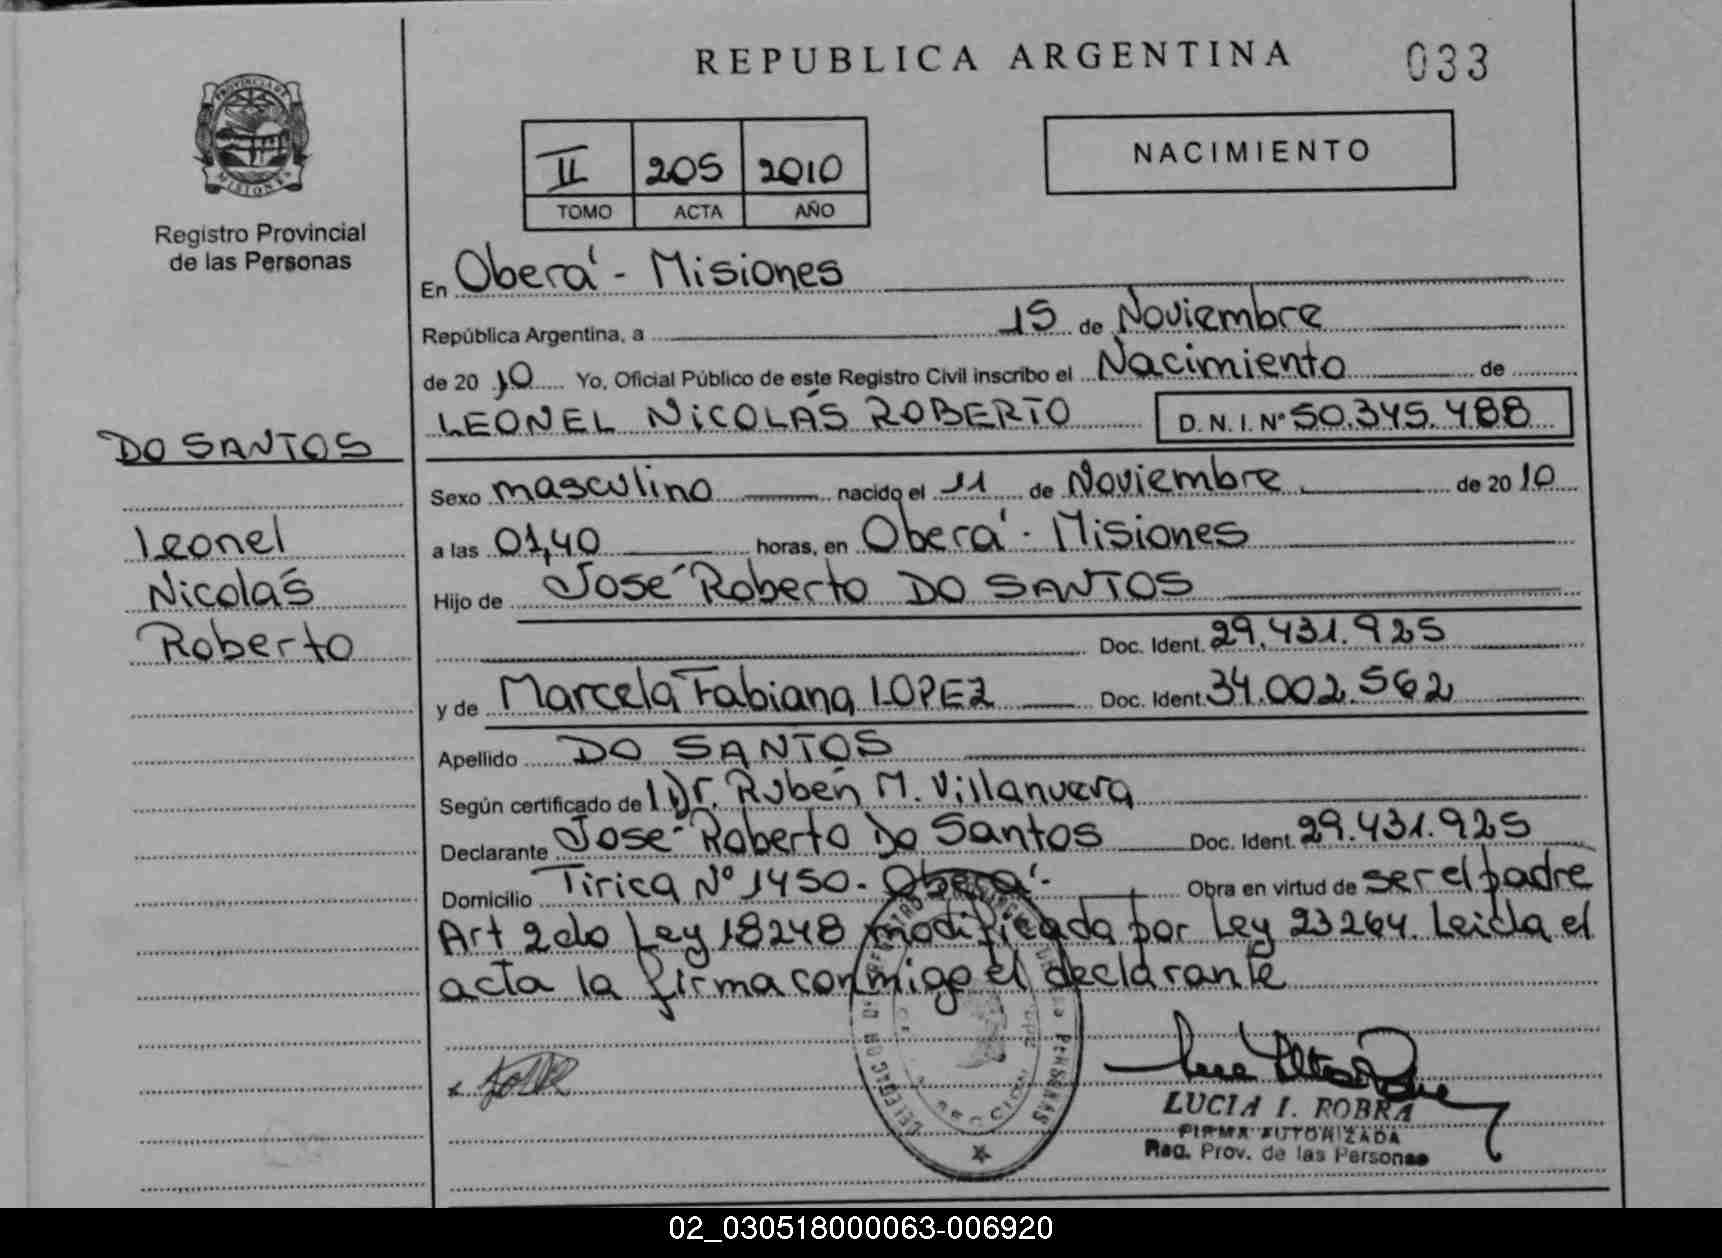 REPUBLICA ARGENTINA
033
PROVINCIA DE
MISIONES
Registro Provincial
de las Personas
II 205 2010
TOMO ACTA AÑO
NACIMIENTO
En Oberá - Misiones
República Argentina, a 15 de Noviembre
de 2010 Yo, Oficial Público de este Registro Civil inscribo el Nacimiento de
LEONEL NICOLÁS ROBERTO D.N.I. Nº 50.345.488
DO SANTOS
Leonel
Nicolás
Roberto
Sexo masculino nacido el 11 de Noviembre de 2010
a las 01,40 horas, en Oberá - Misiones
Hijo de José Roberto DO SANTOS
Doc. Ident. 29.431.925
y de Marcela Fabiana LOPEZ Doc. Ident. 34.002.562
Apellido DO SANTOS
Según certificado de l Dr. Rubén M. Villanueva
Declarante José Roberto Do Santos Doc. Ident. 29.431.925
Domicilio Tirica Nº 1450. Oberá.- Obra en virtud de ser el padre
Art 2do Ley 18248 modificada por Ley 23264. Leida el
acta la firma conmigo el declarante
LUCIA I. ROBRA
FIRMA AUTORIZADA
Reg. Prov. de las Personas
02_030518000063-006920